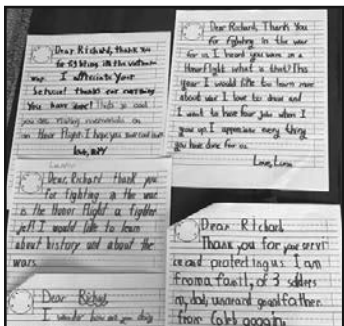 Dear Richard, thank you
for fighting in the vietnam
war. I appreciate your
service! thanks for everything
you have done! Thats so cool
you are visiting memorials on
an Honor Flight. I hope you
Love,
Dear Richard, Thank You
for fighting in the war
for us. I heard you were in a
Honor flight what is that? This
year I would like to learn more
about war I love to draw and
I want to have four jobs when I
grow up. I appreciate every thing
you have done for us.
Love, Luna
Dear, Richard thank you
for fighting in the war
is the Honor flight a fighter
jet? I would like to learn
about history and about the
wars.
Dear Richard
Thank you for your servi
ce and protecting us. I am
from a family of 3 soldiers
my dad, uncle and grandfather
from Caleb
Dear Richard,
I wonder how are you doing